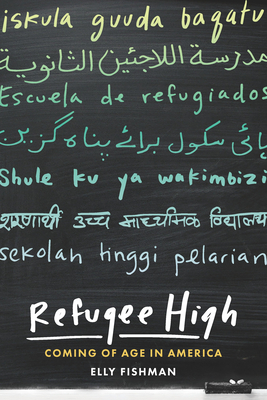 iskula guuda baqatu
مدرسة اللاجئين الثانوية
Escuela de refugiados
ہائی سکول برائے پناہ گزین
Shule ku ya wakimbizi
शरणार्थी उच्च माध्यमिक विद्यालय
sekolah tinggi pelarian
Refugee High
COMING OF AGE IN AMERICA
ELLY FISHMAN